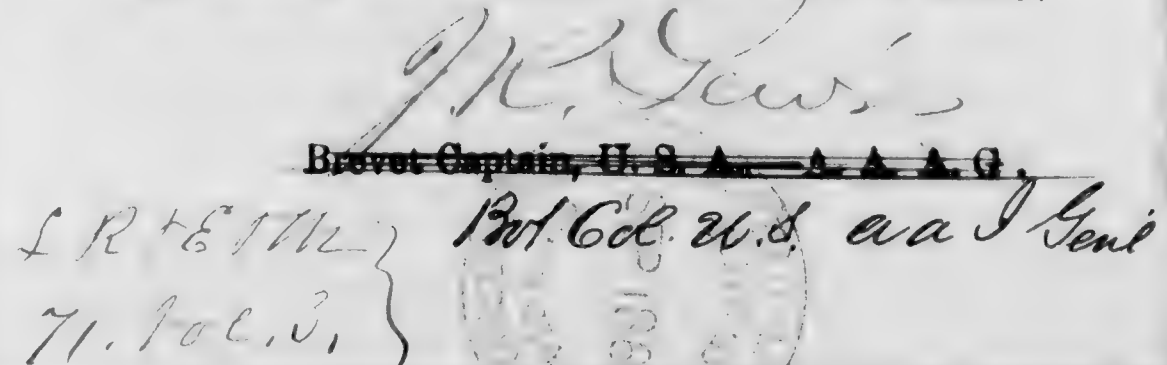 J. R. Lewis
Brevet Captain, U. S. A. — A. A. A. G.
Bvt. Col. U.S. a a I Genl
L R + E M
71. Vol. 3.